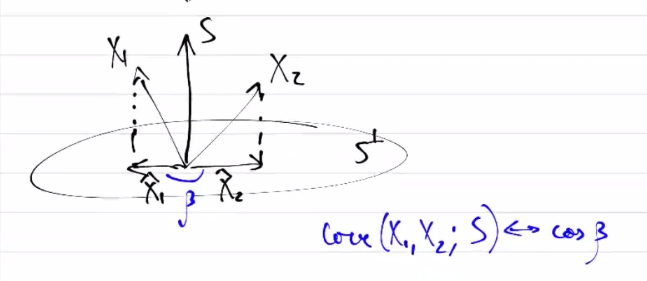 S
X₁
X₂
S⊥
X̂₁ X̂₂
β
corr(X₁, X₂; S) ↔ cos β